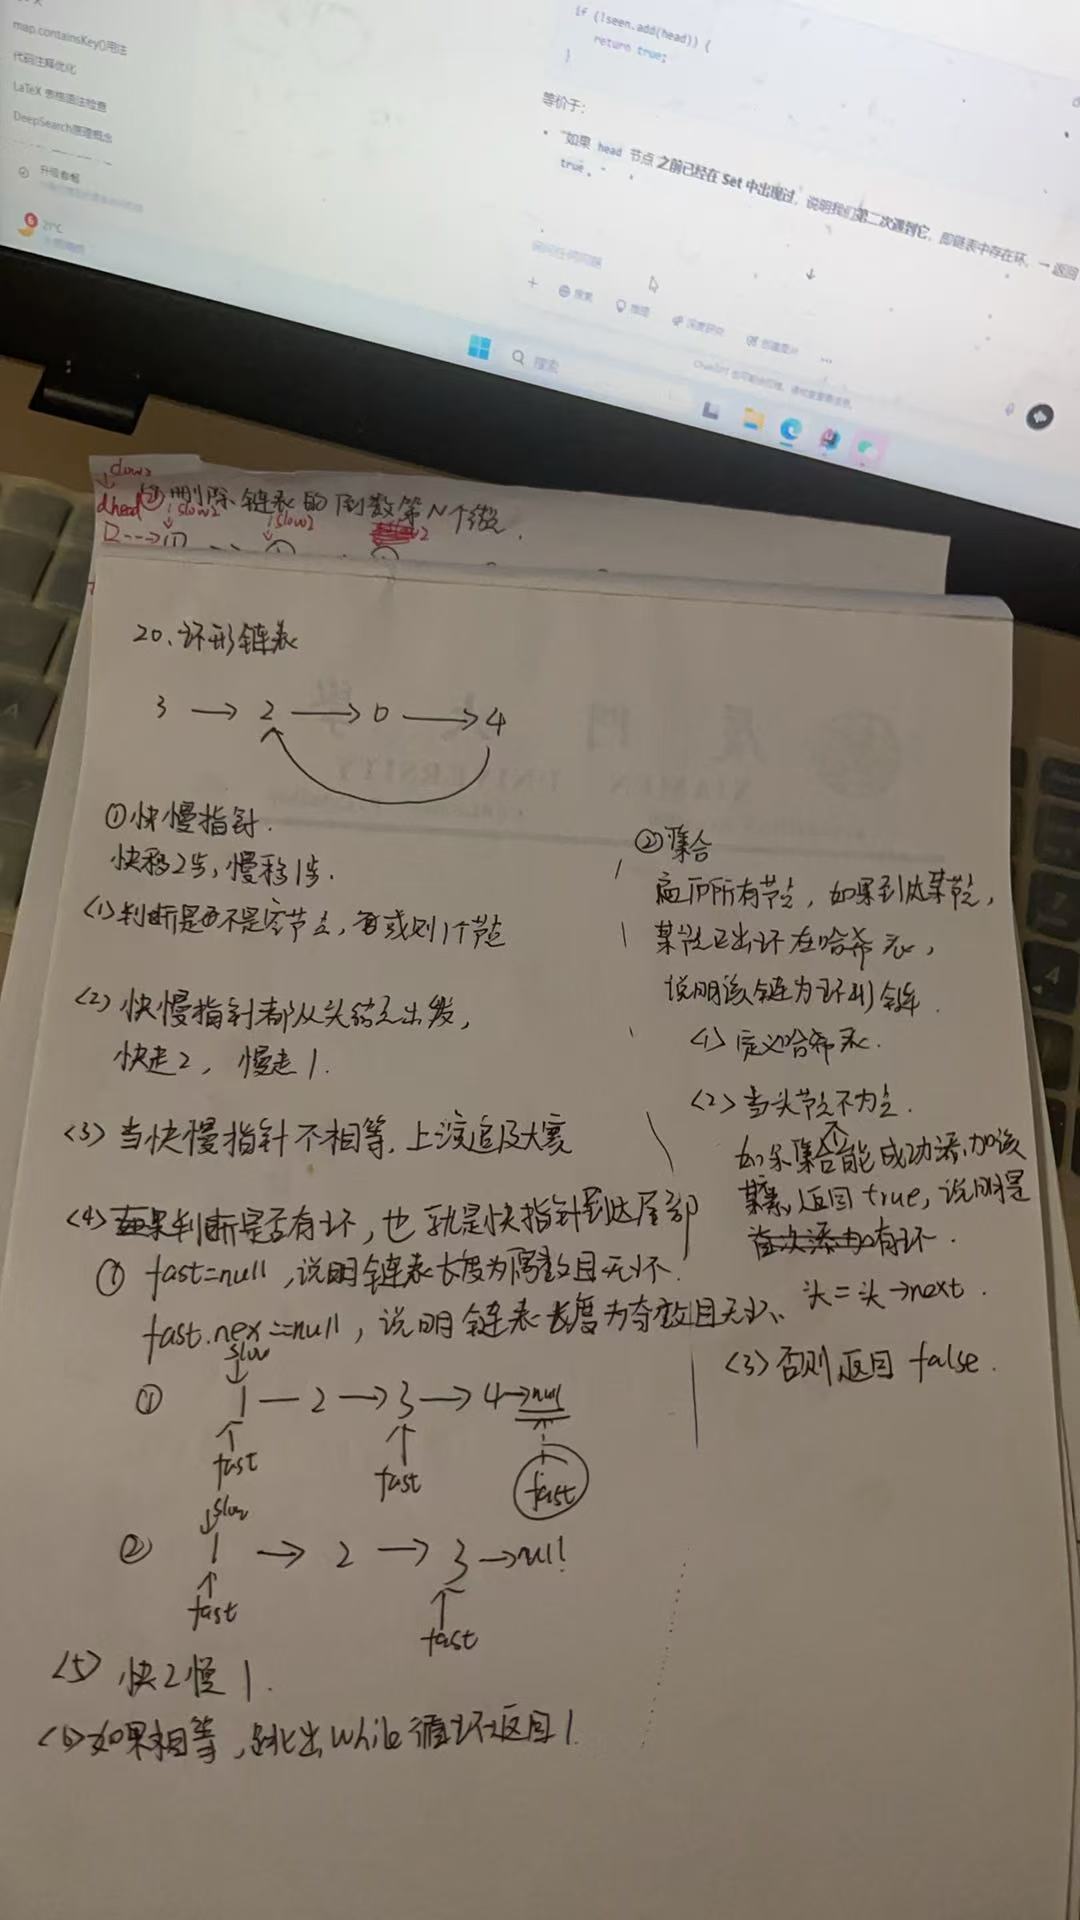 map.containsKey()用法
代码注释优化
LaTeX 表格语法检查
DeepSearch原理概念
升级套餐
6
21°C
if (!seen.add(head)) {
return true;
}
等价于：
"如果 head 节点之前已经在 Set 中出现过，说明我们第二次遇到它，即链表中存在环，→ 返回
true。"
询问任何问题
搜索
推理
深度研究
创建图片
搜索
slow2
dhead ② 删除链表的倒数第N个结
slow2
slow2
2
20、环形链表
3 → 2 → 0 → 4
①快慢指针.
快移2步，慢移1步.
<1>判断是不是空节点，或则1个节点
<2>快慢指针都从头结点出发,
快走2， 慢走1.
<3>当快慢指针不相等，上演追及大赛
<4>判断是否有环，也就是快指针到达尾部
① fast=null，说明链表长度为偶数且无环.
fast.nex==null，说明链表长度为奇数且无环.
slow
① 1 — 2 → 3 → 4→null
fast
fast
fast
slow
② 1 → 2 → 3 →null
fast
fast
<5> 快2慢1.
<6>如果相等，跳出while循环返回1.
②集合
遍历所有节点，如果到达某节点，
某节点已出环在哈希表，
说明该链为环形链.
<1>定义哈希表.
<2>当头节点不为空.
如果集合不能成功添加该
某素，返回true，说明是
首次添加有环.
头=头→next.
<3>否则返回 false.
XIAMEN UNIVERSITY